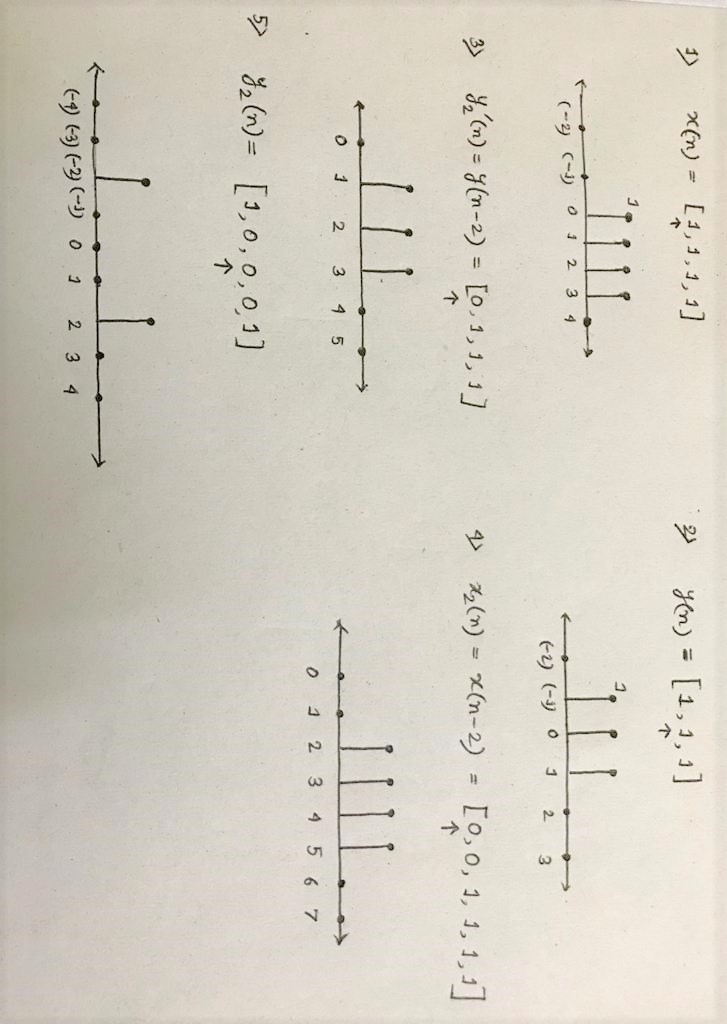 1) x(n) = [1, 1, 1, 1]
↑
1
(-2) (-1) 0 1 2 3 4
2) y(n) = [1, 1, 1]
↑
1
(-2) (-1) 0 1 2 3
3) y₂'(n) = y(n-2) = [0, 1, 1, 1]
↑
0 1 2 3 4 5
4) x₂(n) = x(n-2) = [0, 0, 1, 1, 1, 1]
↑
0 1 2 3 4 5 6 7
5) y₂(n) = [1, 0, 0, 0, 1]
↑
(-4) (-3) (-2) (-1) 0 1 2 3 4